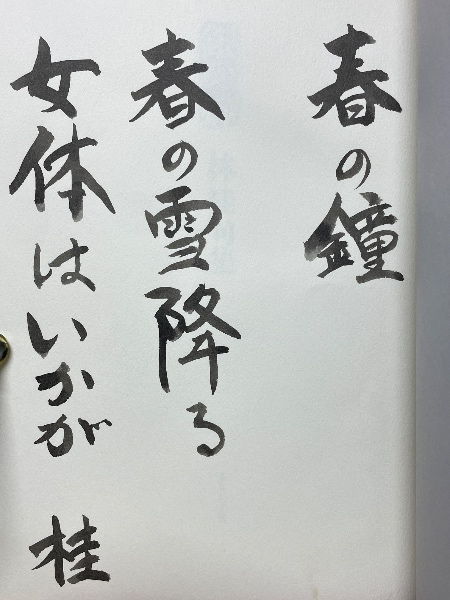 春の鐘
春の雪降る
女体はいかが 桂